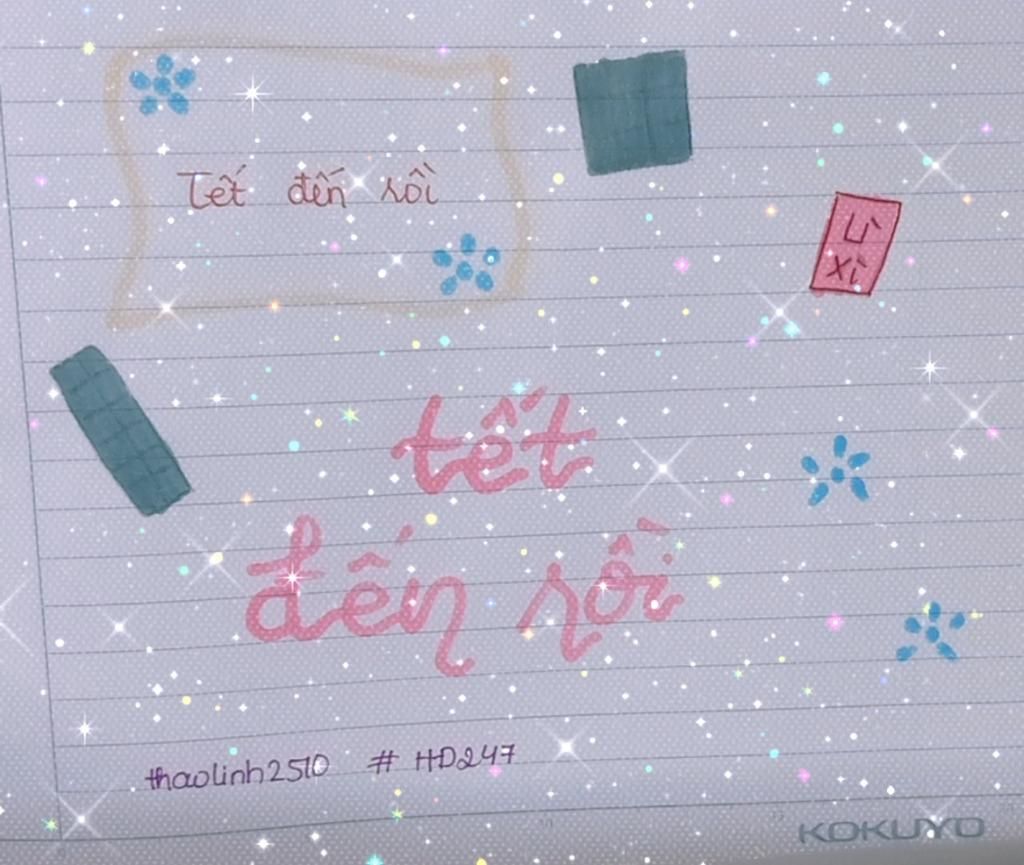 Tết đến rồi
Lì
xì
tết
đến rồi
thaolinh2510 # HD247
KOKUYO